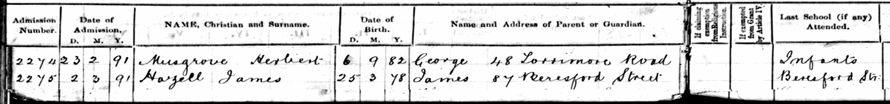 Admission Number. Date of Admission. NAME, Christian and Surname. Date of Birth. Name and Address of Parent or Guardian. If claiming exemption from Religious Instruction. If exempted from Grant by Article IV. Last School (if any) Attended.
D. M. Y. D. M. Y.
2274 23 2 91 Musgrove Herbert 6 9 82 George 48 Lorrimore Road Infants
2275 2 3 91 Hazell James 25 3 78 James 87 Beresford Street Beresford Str.